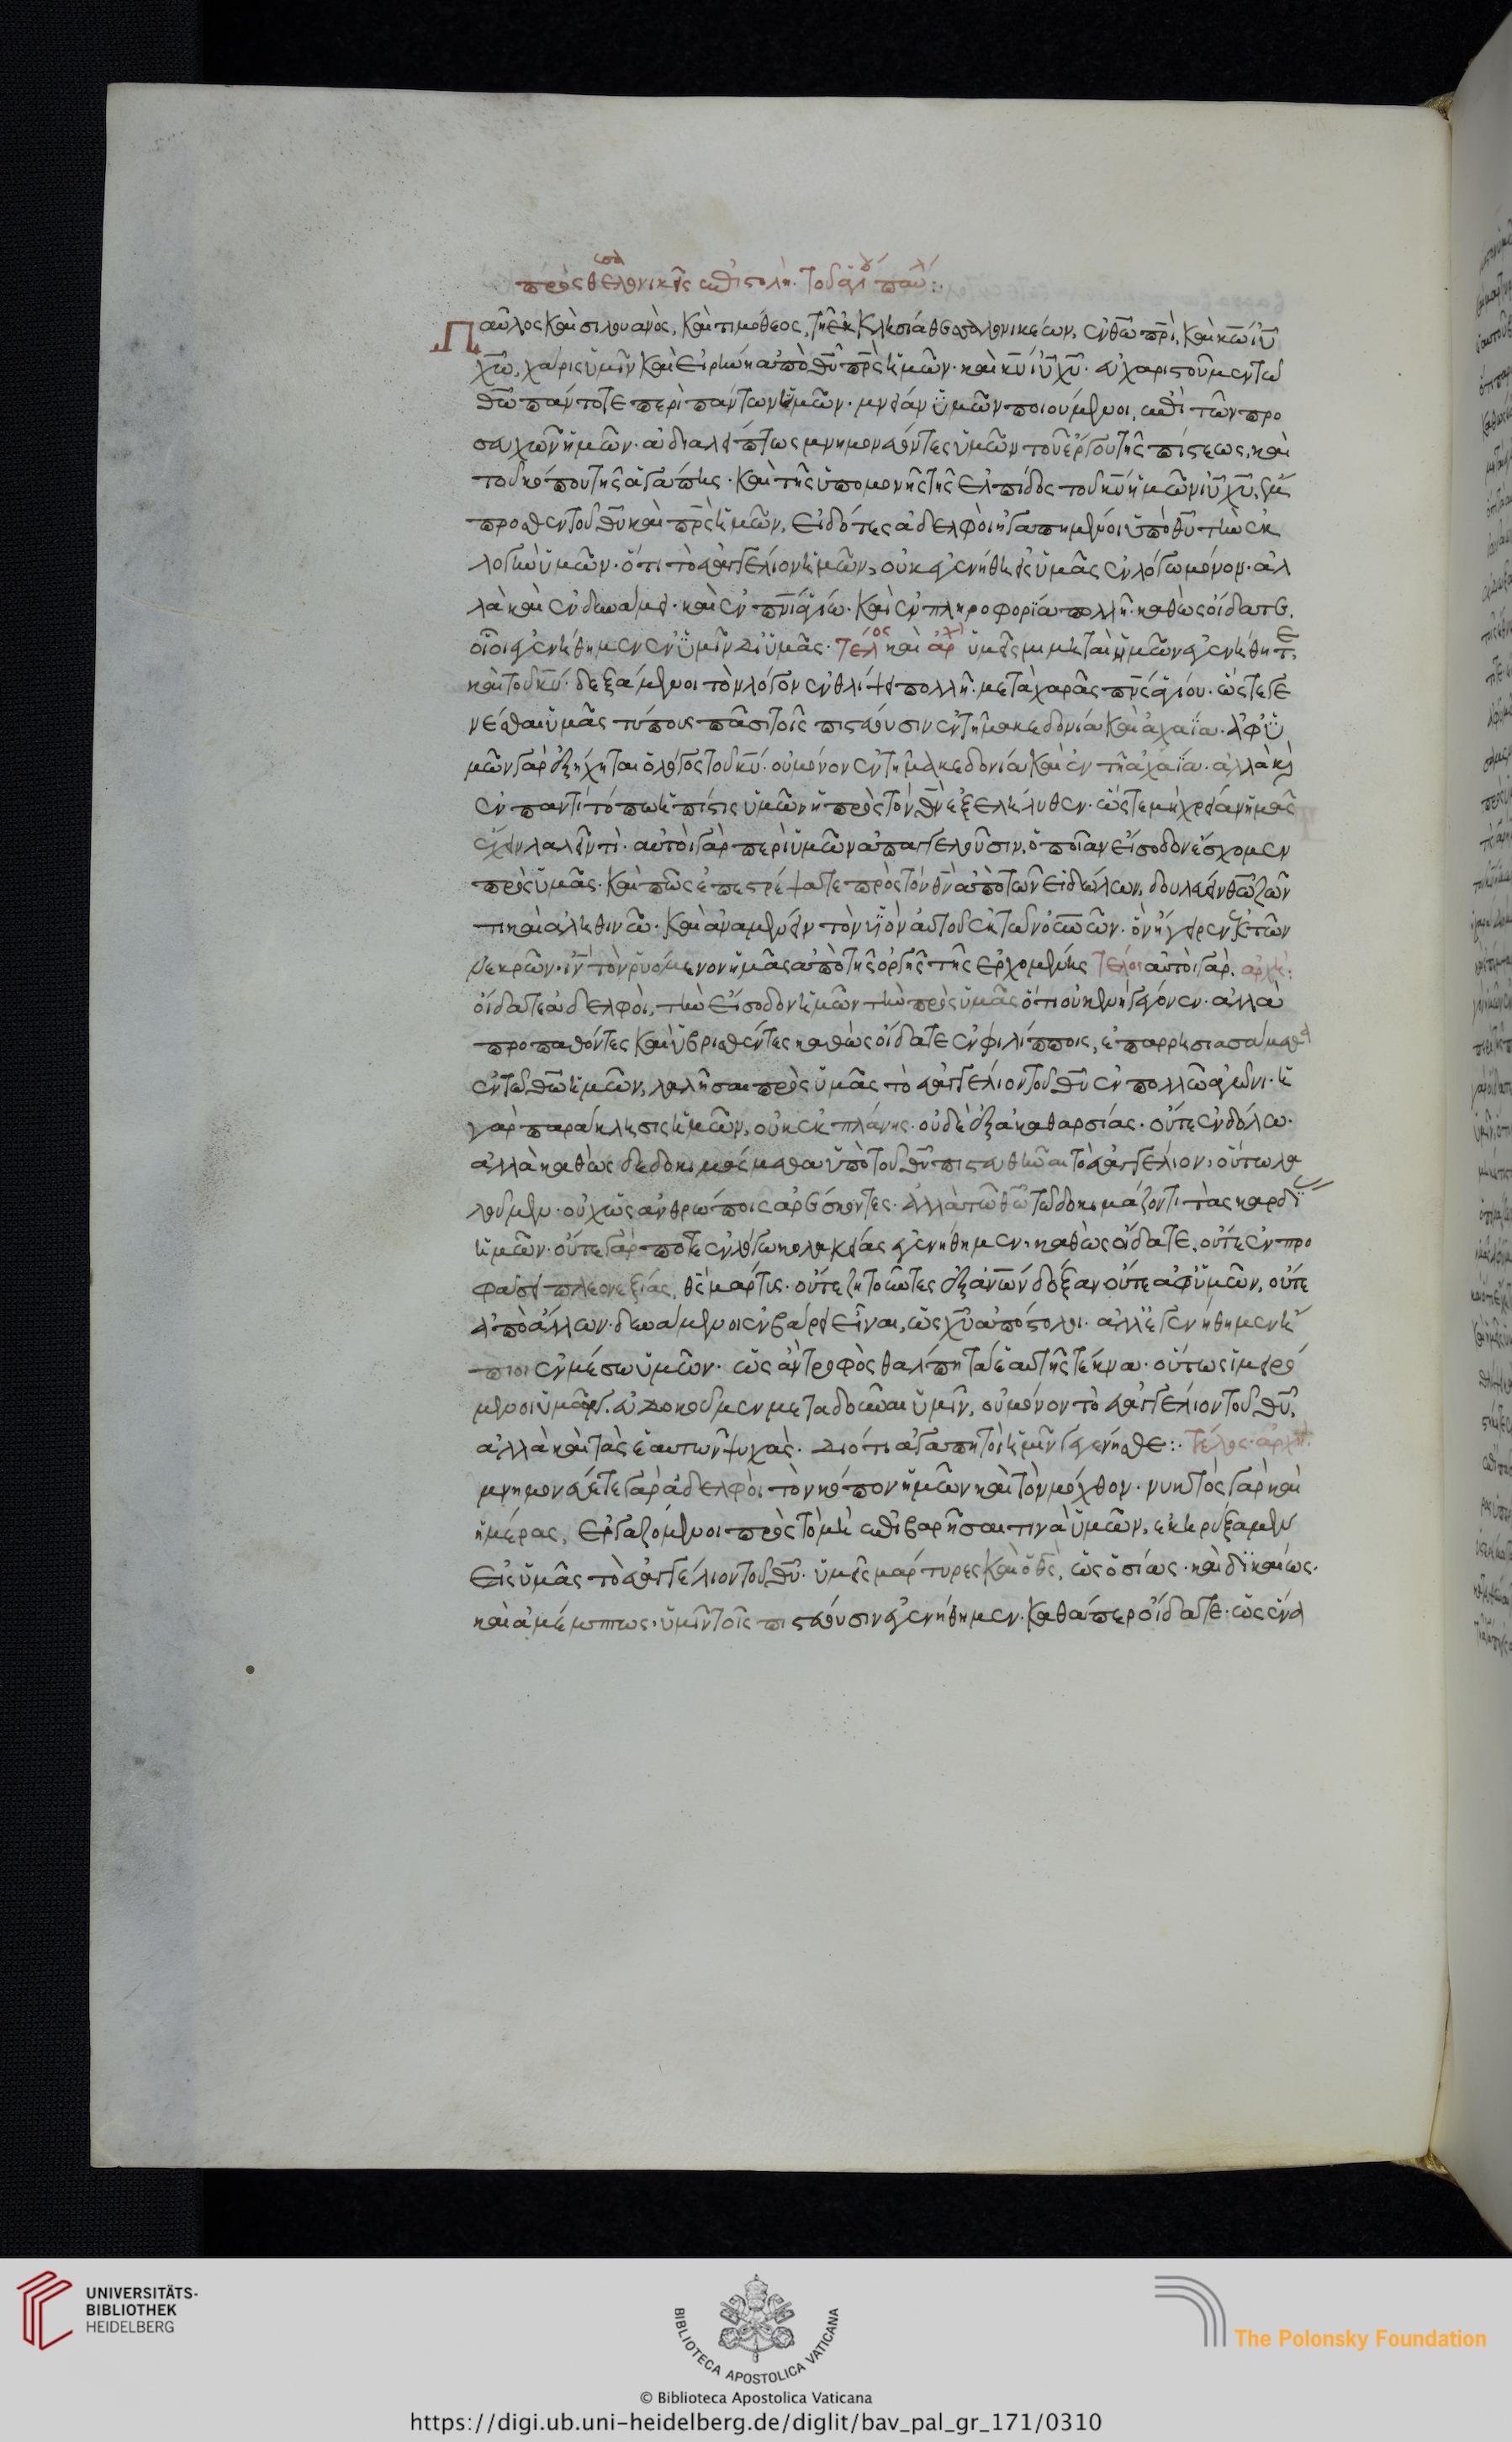 πρὸς θεσαλονικεῖς ἐπιστολὴ τοῦ ἁγί παύλ:
Παῦλος καὶ σιλουανὸς, καὶ τιμόθεος, τῆ ἐκκλησία θεσσαλονικέων, ἐν θω πρι, καὶ κω ιυ
χω, χάρις ὑμῖν καὶ εἰρήνη ἀπὸ θυ πρς ἡμῶν· καὶ κυ ιυ χυ· εὐχαριστοῦμεν τῶ
θω πάντοτε περὶ πάντων ἡμῶν· μνείαν ὑμῶν ποιούμενοι, ἐπὶ τῶν προ
σευχῶν ἡμῶν· ἀδιαλείπτως μνημονεύοντες ὑμῶν τοῦ ἔργου τῆς πίστεως, καὶ
τοῦ κόπου τῆς ἀγάπης· καὶ τῆς ὑπομονῆς τῆς ἐλπίδος τοῦ κυ ἡμῶν ιυ χυ, ἔμ
προσθεν τοῦ θυ καὶ πρς ἡμῶν, εἰδότες ἀδελφοὶ ἠγαπημένοι ὑπὸ θυ τὴν ἐκ
λογὴν ὑμῶν· ὅτι τὸ εὐαγγέλιον ἡμῶν, οὐκ ἐγενήθη εἰς ὑμᾶς ἐν λόγω μόνον· ἀλ
λὰ καὶ ἐν δυνάμει· καὶ ἐν πνι ἁγίω· καὶ ἐν πληροφορία πολλῆ· καθὼς οἴδατε.
οἷοι ἐγενήθημεν ἐν ὑμῖν δι ὑμᾶς· τέλος καὶ ἀρχ ὑμεῖς μιμηταὶ ἡμῶν ἐγενήθητε,
καὶ τοῦ κυ· δεξάμενοι τὸν λόγον ἐν θλίψει πολλῆ· μετὰ χαρᾶς πνς ἁγίου· ὥστε γε
νέσθαι ὑμᾶς τύπους πᾶσι τοῖς πιστεύουσιν ἐν τῆ μακεδονία καὶ ἀχαΐα· ἀφ ὑ
μῶν γὰρ ἐξήχηται ὁ λόγος τοῦ κυ· οὐ μόνον ἐν τῆ μακεδονία καὶ ἐν τῆ ἀχαΐα· ἀλλὰ κὶ
ἐν παντὶ τόπω ἡ πίστις ὑμῶν ἡ πρὸς τὸν θν ἐξελήλυθεν· ὥστε μὴ χρείαν ἡμᾶς
ἔχειν λαλεῖν τὶ· αὐτοὶ γὰρ περὶ ὑμῶν ἀπαγγέλουσιν, ὁποῖαν εἴσοδον ἔσχομεν
πρὸς ὑμᾶς· καὶ πῶς ἐπεστρέψατε πρὸς τὸν θν ἀπὸ τῶν εἰδώλων, δουλεύειν θω ζῶν
τι καὶ ἀληθινῶ· καὶ ἀναμένειν τὸν υἱὸν αὐτοῦ ἐκ τῶν οὐνων· ὃν ἤγειρεν ἐκ τῶν
νεκρῶν· ιν τὸν ῥυόμενον ἡμᾶς ἀπὸ τῆς ὀργῆς τῆς ἐρχομένης τέλος αὐτοὶ γὰρ· ἀρχὴ:
οἴδατε ἀδελφοὶ, τὴν εἴσοδον ἡμῶν τὴν πρὸς ὑμᾶς ὅτι οὐ κενὴ γέγονεν· ἀλλὰ
προπαθόντες καὶ ὑβρισθέντες καθὼς οἴδατε ἐν φιλίπποις, ἐπαρρησιασάμεθα
ἐν τῶ θω ἡμῶν, λαλῆσαι πρὸς ὑμᾶς τὸ εὐαγγέλιον τοῦ θυ ἐν πολλῶ ἀγῶνι· ἡ
γὰρ παράκλησις ἡμῶν, οὐκ ἐκ πλάνης· οὐδὲ ἐξ ἀκαθαρσίας· οὔτε ἐν δόλω·
ἀλλὰ καθὼς δεδοκιμάσμεθα ὑπὸ τοῦ θυ πιστευθῆναι τὸ εὐαγγέλιον, οὕτω λα
λοῦμεν· οὐχ ὡς ἀνθρώποις ἀρέσκοντες· ἀλλὰ τῶ θω τῶ δοκιμάζοντι τὰς καρδί
ἡμῶν· οὔτε γάρ ποτε ἐν λόγω κολακείας ἐγενήθημεν, καθὼς οἴδατε, οὔτε ἐν προ
φάσει πλεονεξίας, θς μάρτυς· οὔτε ζητοῦντες ἐξ ἀνων δόξαν οὔτε ἀφ ὑμῶν, οὔτε
ἀπὸ ἄλλων· δυνάμενοι ἐν βάρει εἶναι, ὡς χυ ἀπόστολοι· ἀλλ ἐγενήθημεν ἤ
πιοι ἐν μέσω ὑμῶν· ὡς ἂν τροφὸς θάλπη τὰ ἑαυτῆς τέκνα· οὕτως ἱμειρό
μενοι ὑμῶν, εὐδοκοῦμεν μεταδοῦναι ὑμῖν, οὐ μόνον τὸ εὐαγγέλιον τοῦ θυ,
ἀλλὰ καὶ τὰς ἑαυτῶν ψυχὰς· διότι ἀγαπητοὶ ἡμῖν γεγένησθε:· τέλος· ἀρχὴ
μνημονεύετε γὰρ ἀδελφοὶ τὸν κόπον ἡμῶν καὶ τὸν μόχθον· νυκτὸς γὰρ καὶ
ἡμέρας, ἐργαζόμενοι πρὸς τὸ μὴ ἐπιβαρῆσαι τινὰ ὑμῶν, ἐκηρύξαμεν
εἰς ὑμᾶς τὸ εὐαγγέλιον τοῦ θυ· ὑμεῖς μάρτυρες καὶ ὁ θς, ὡς ὁσίως· καὶ δικαίως·
καὶ ἀμέμπτως, ὑμῖν τοῖς πιστεύουσιν ἐγενήθημεν· καθάπερ οἴδατε· ὡς ἕνα
UNIVERSITÄTS-
BIBLIOTHEK
HEIDELBERG
BIBLIOTECA APOSTOLICA VATICANA
© Biblioteca Apostolica Vaticana
The Polonsky Foundation
https://digi.ub.uni-heidelberg.de/diglit/bav_pal_gr_171/0310